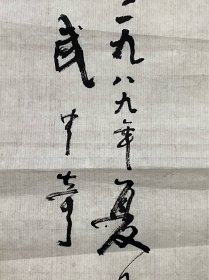 一九八九年夏
武中奇